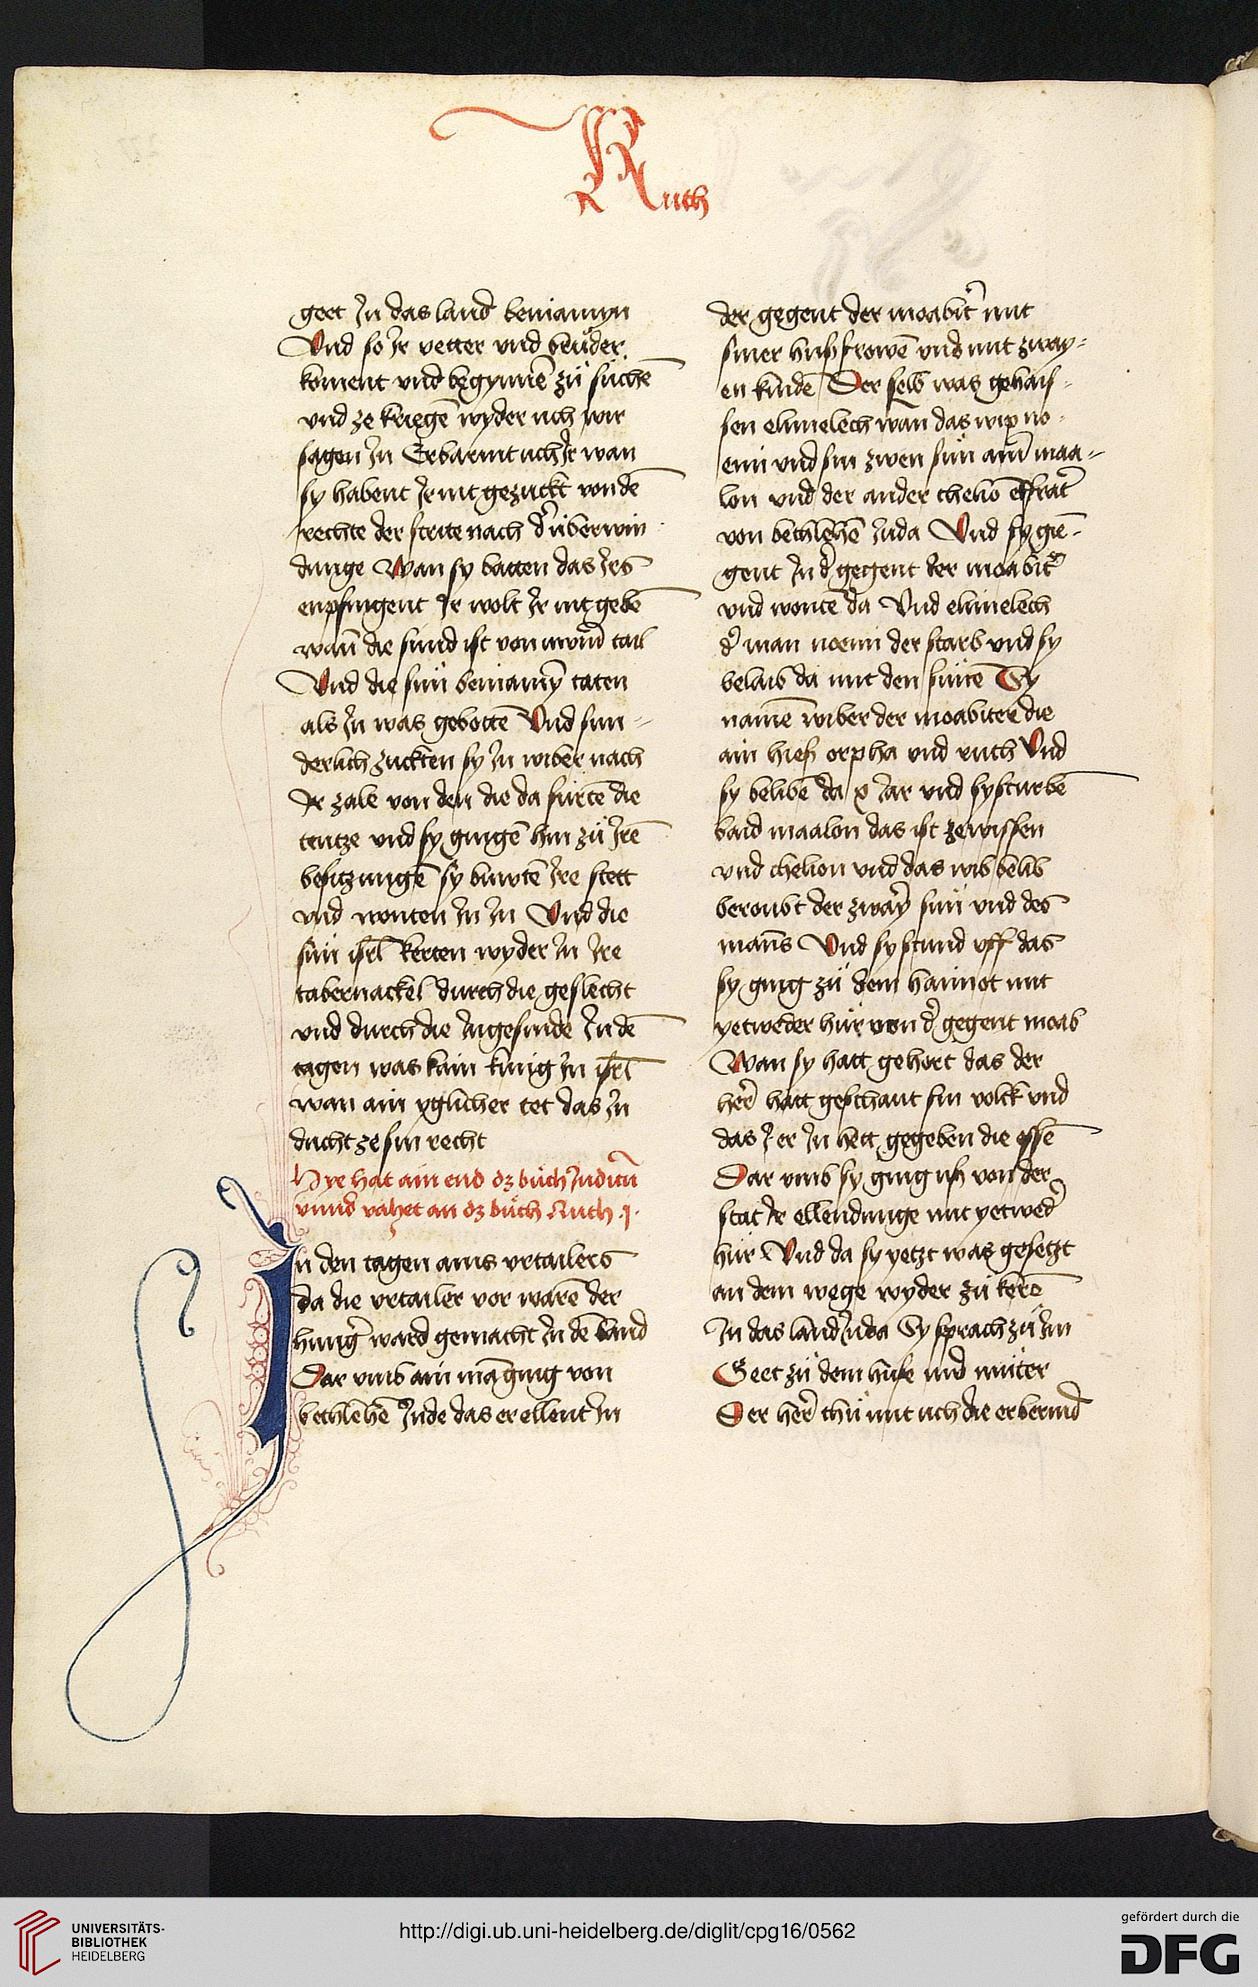 Ruth
geet Jn das land beniamyn
Vnd so Jr vetter vnd brüder
koment vnd begynnē zů sůchē
vnd ze kriegē wyder uch wir
sagen Jn Erbarmt uch Jr wan
sy habent Jr nit gezuckt von dē
rechte der strite nach d' überwin
dunge Wan sy batten das Jrs
enpfingent Jr wolt Jr nit gebē
wañ die sünd ist von uwerm tail
Vnd die sün beniamȳ taten
als Jn was gebottē Vnd sun-
derlich zuckten sy Jn wiber nach
Jr zale von den die da fürtē die
tentze vnd sy gingē hin zů Jrē
besitzungē sy buwtē Jre stett
vnd wonten Jn Jn Vnd die
sün isrl̄ kerten wyder Jn Jre
tabernackel durch die geslecht
vnd durch die Jngesinde Jn dē
tagen was kain kunig Jn isrl̄
wan ain yglicher tet das Jn
ducht ze sin recht
Hye hat ain end dz bůch Judicū
vnnd vahet an dz bůch Ruth .j.
Jn den tagen ains vrtailers
da die vrtailer vor warē der
hung' ward gemacht Jn dē land
Dar vmb ain mā ging von
bethlehē Jude das er ellent Jn
der gegent der moabit' mit
siner husfrowē vnd mit zway-
en kindē Der selb was gehais-
sen elimelech wan das wip no-
emi vnd sin zwen sün ain' maa-
lon vnd der ander cheliō effrat'
von bethlehē Juda Vnd sy gie-
gent Jn d' gegent der moabit'
vnd wontē da Vnd elimelech
d' man noemi der starb vnd sy
belaib da mit den sünē Sy
namē wiber der moabiter die
ain hies orpha vnd ruth Vnd
sy belibē da x Jar vnd sy sturbē
baid maalon das ist ze wissen
vnd chelion vnd das wib belib
beroubt der zwaȳ sün vnd des
mañs Vnd sy stund vff das
sy ging zů dem haimot mit
yetweder snür von d' gegent moab
Wan sy hatt gehort das der
her' hatt geschaut sin volck vnd
das er Jn hett gegeben die essē
Dar vmb sy ging us von der
stat Jr ellendunge mit yetwed'
snür Vnd da sy yetzt was gesetzt
an dem wege wyder zů kerē
Jn das land Juda Sy sprach zů Jn
Geet zů dem huse uwer můter
Der her' thů mit uch die erbermd
UNIVERSITÄTS-
BIBLIOTHEK
HEIDELBERG
http://digi.ub.uni-heidelberg.de/diglit/cpg16/0562
gefördert durch die
DFG